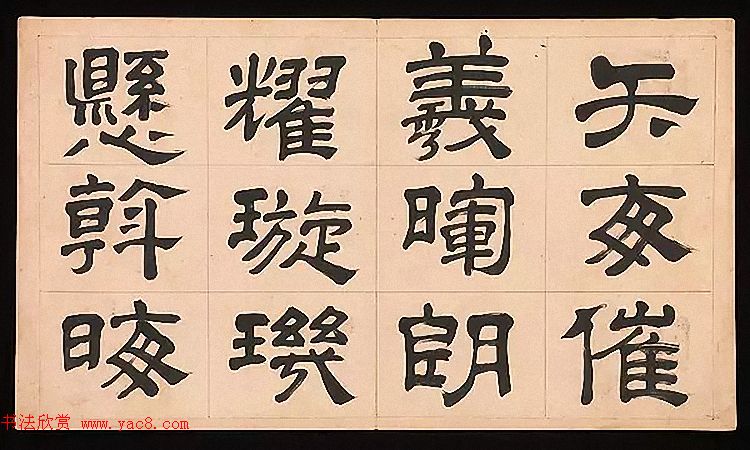 矢每催
羲暉朗
耀璇璣
懸斡晦
书法欣赏 www.yac8.com